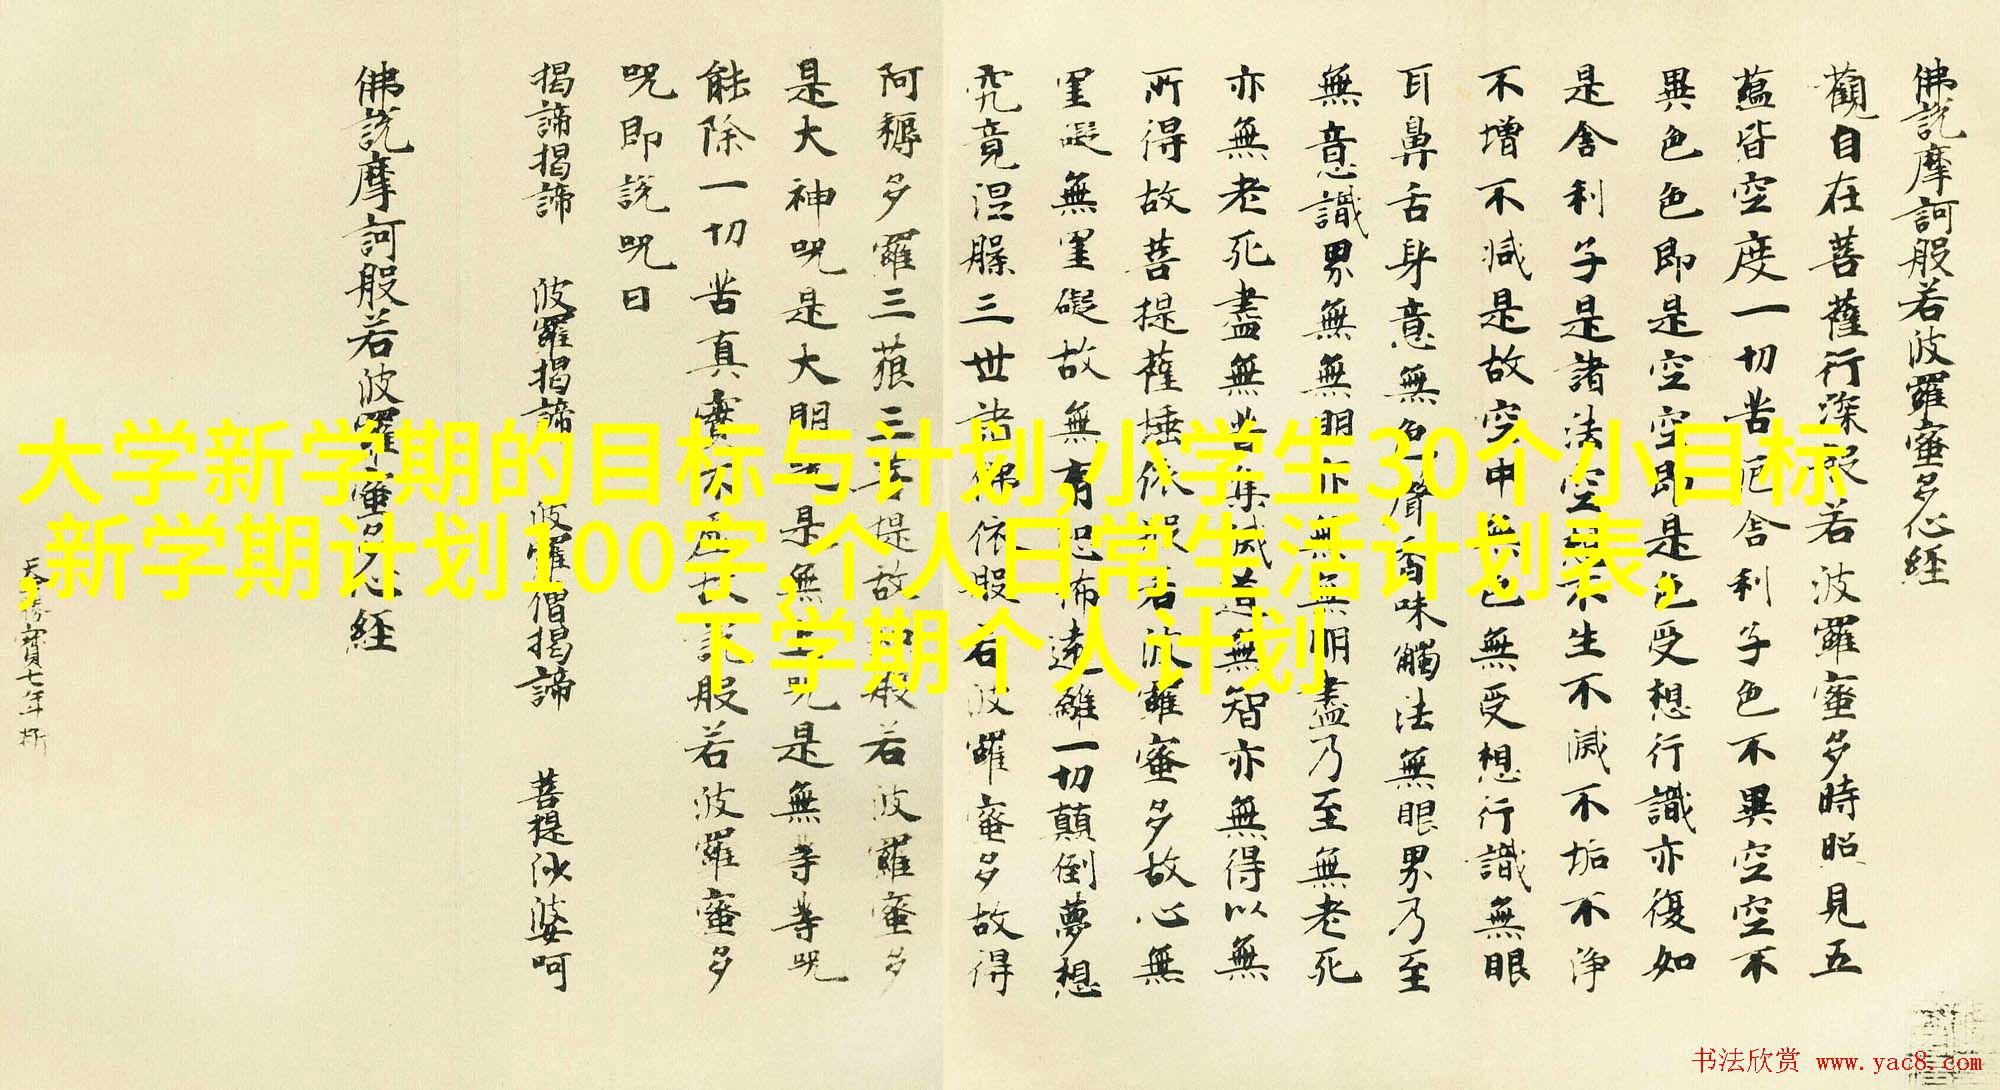 佛說摩訶般若波羅蜜多心經
觀自在菩薩行深般若波羅蜜多時照見五
蘊皆空度一切苦厄舍利子色不異空空不
異色色即是空空即是色受想行識亦復如
是舍利子是諸法空相不生不滅不垢不淨
不增不減是故空中無色無受想行識無眼
耳鼻舌身意無色聲香味觸法無眼界乃至
無意識界無無明亦無無明盡乃至無老死
亦無老死盡無苦集滅道無智亦無得以無
所得故菩提薩埵依般若波羅蜜多故心無
罣礙無罣礙故無有恐怖遠離一切顛倒夢想
究竟涅槃三世諸佛依般若波羅蜜多故得
阿耨多羅三藐三菩提故知般若波羅蜜多
是大神咒是大明咒是無上咒是無等等咒
能除一切苦真實不虛故說般若波羅蜜多
咒即說咒曰
揭諦揭諦 波羅揭諦 波羅僧揭諦 菩提娑婆呵
佛說摩訶般若波羅蜜多心經
天寶七年
大学新学期的目标与计划,小学生30个小目标
,新学期计划100字,个人日常生活计划表,
下学期个人计划
书法欣赏 www.yac8.com